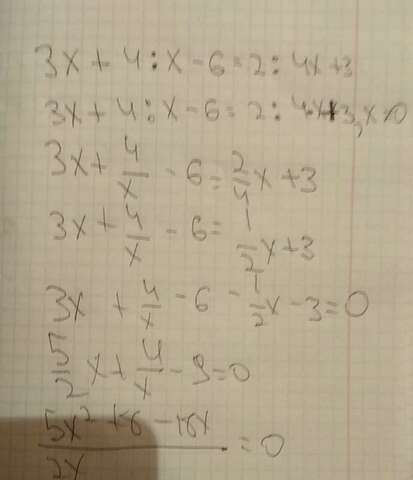 3x + 4 : x - 6 = 2 : 4x + 3
3x + 4 : x - 6 = 2 : 4x + 3, x ≠ 0
3x + 4/x - 6 = 2/4 x + 3
3x + 4/x - 6 = 1/2 x + 3
3x + 4/x - 6 - 1/2 x - 3 = 0
5/2 x + 4/x - 9 = 0